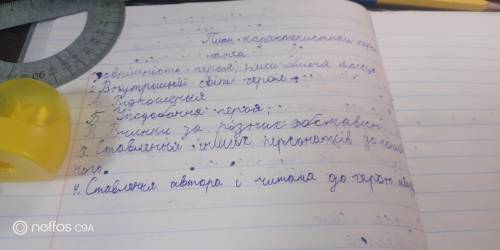 План характеристики
1. Зовнішність героя, риси обличчя
2. Внутрішній світ героя
А.
Б. Уподобання героя;
В. Вчинки за різних обставин
3. Ставлення інших персонажів до
нього.
4. Ставлення автора і читача до героя
noffos C9A